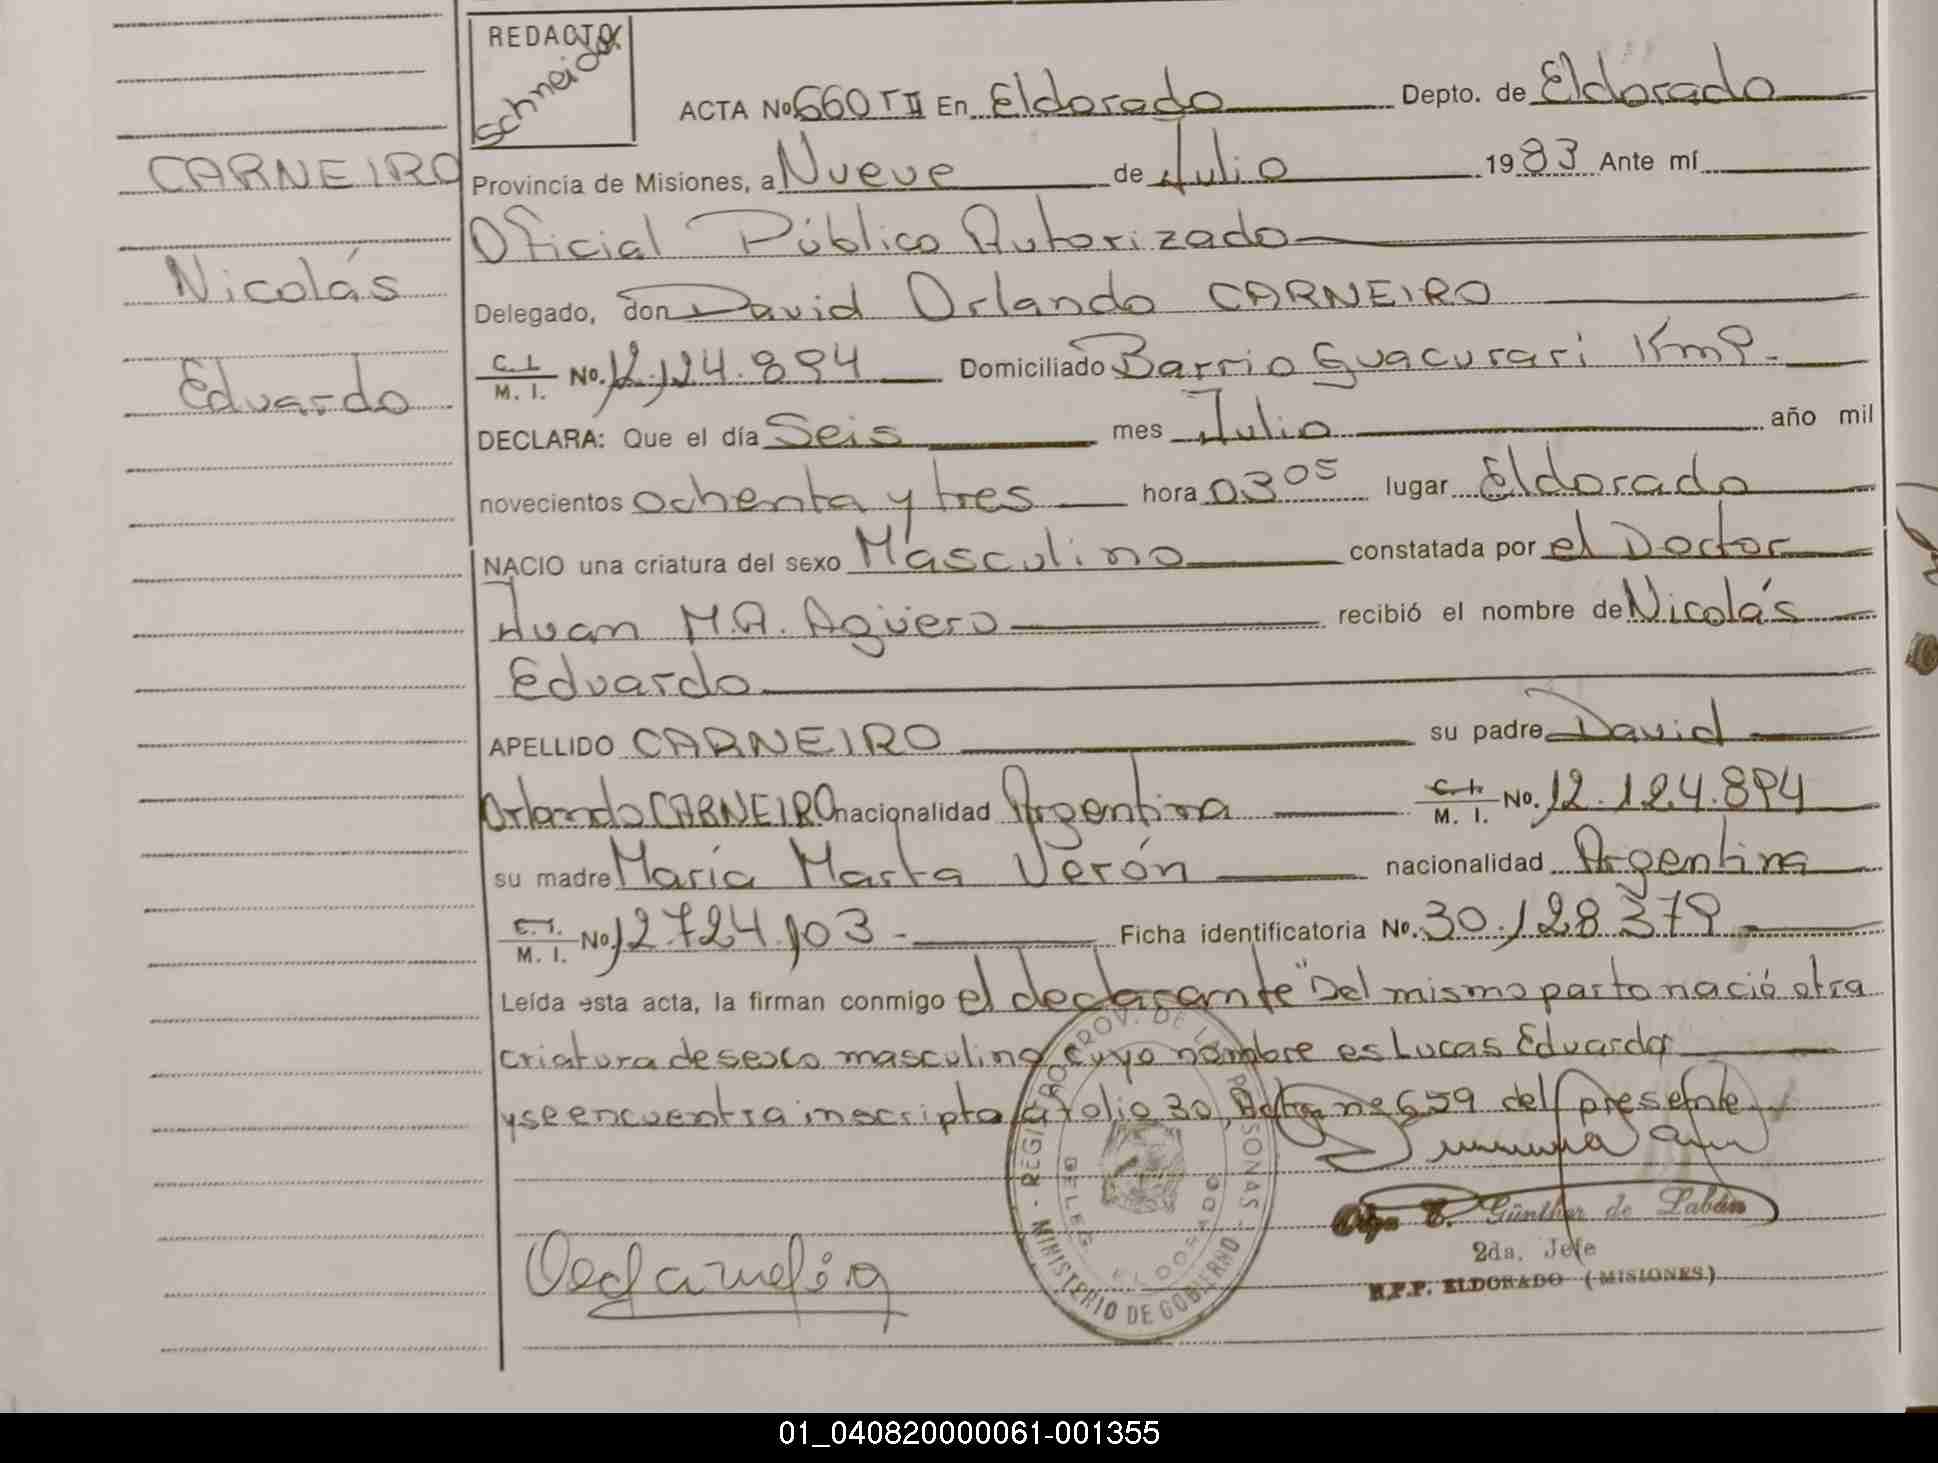 REDACTO
Schneider
ACTA No 660 T II En Eldorado Depto. de Eldorado
CARNEIRO
Provincia de Misiones, a Nueve de Julio 1983 Ante mí
Oficial Público Autorizado
Nicolás
Delegado, don David Orlando CARNEIRO
C. I. / M. I. No. 12.124.894 Domiciliado Barrio Guacurari Km9.
Eduardo
DECLARA: Que el día Seis mes Julio año mil
novecientos ochenta y tres hora 03 05 lugar Eldorado
NACIO una criatura del sexo Masculino constatada por el Doctor
Juan M.A. Agüero recibió el nombre de Nicolás
Eduardo
APELLIDO CARNEIRO su padre David
Orlando CARNEIRO nacionalidad Argentina C. I. / M. I. No. 12.124.894
su madre María Marta Verón nacionalidad Argentina
C. I. / M. I. No 12724.103.- Ficha identificatoria No. 30.128.379
Leída esta acta, la firman conmigo el declarante "Del mismo parto nació otra
criatura de sexo masculino cuyo nombre es Lucas Eduardo
y se encuentra inscripto a folio 30, Acta nº 659 del presente
REGIS PROV. DE L PERSONAS - MINISTERIO DE GOBIERNO -
DELEG. ELDORADO
Olga E. Günther de Labán
2da. Jefe
R.P.P. ELDORADO (MISIONES)
01_040820000061-001355